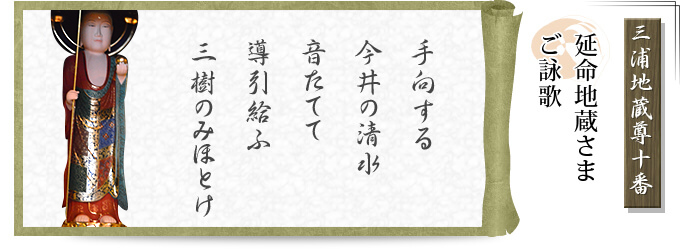 三浦地蔵尊十番
延命地蔵さま
ご詠歌
手向する
今井の清水
音たてて
導引給ふ
三樹のみほとけ